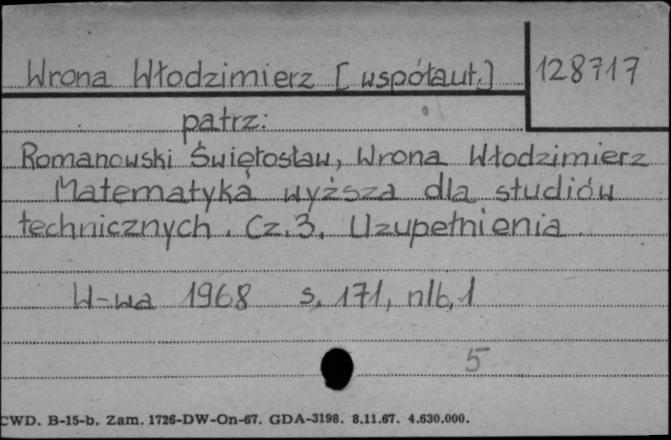 Wrona Włodzimierz [współaut.] 128717
patrz:
Romanowski Świętosław, Wrona Włodzimierz
Matematyka wyższa dla studiów
technicznych. Cz.3. Uzupełnienia.
W-wa 1968 s. 171, nlb, 1
5
CWD. B-15-b. Zam. 1726-DW-On-67. GDA-3198. 8.11.67. 4.630.000.